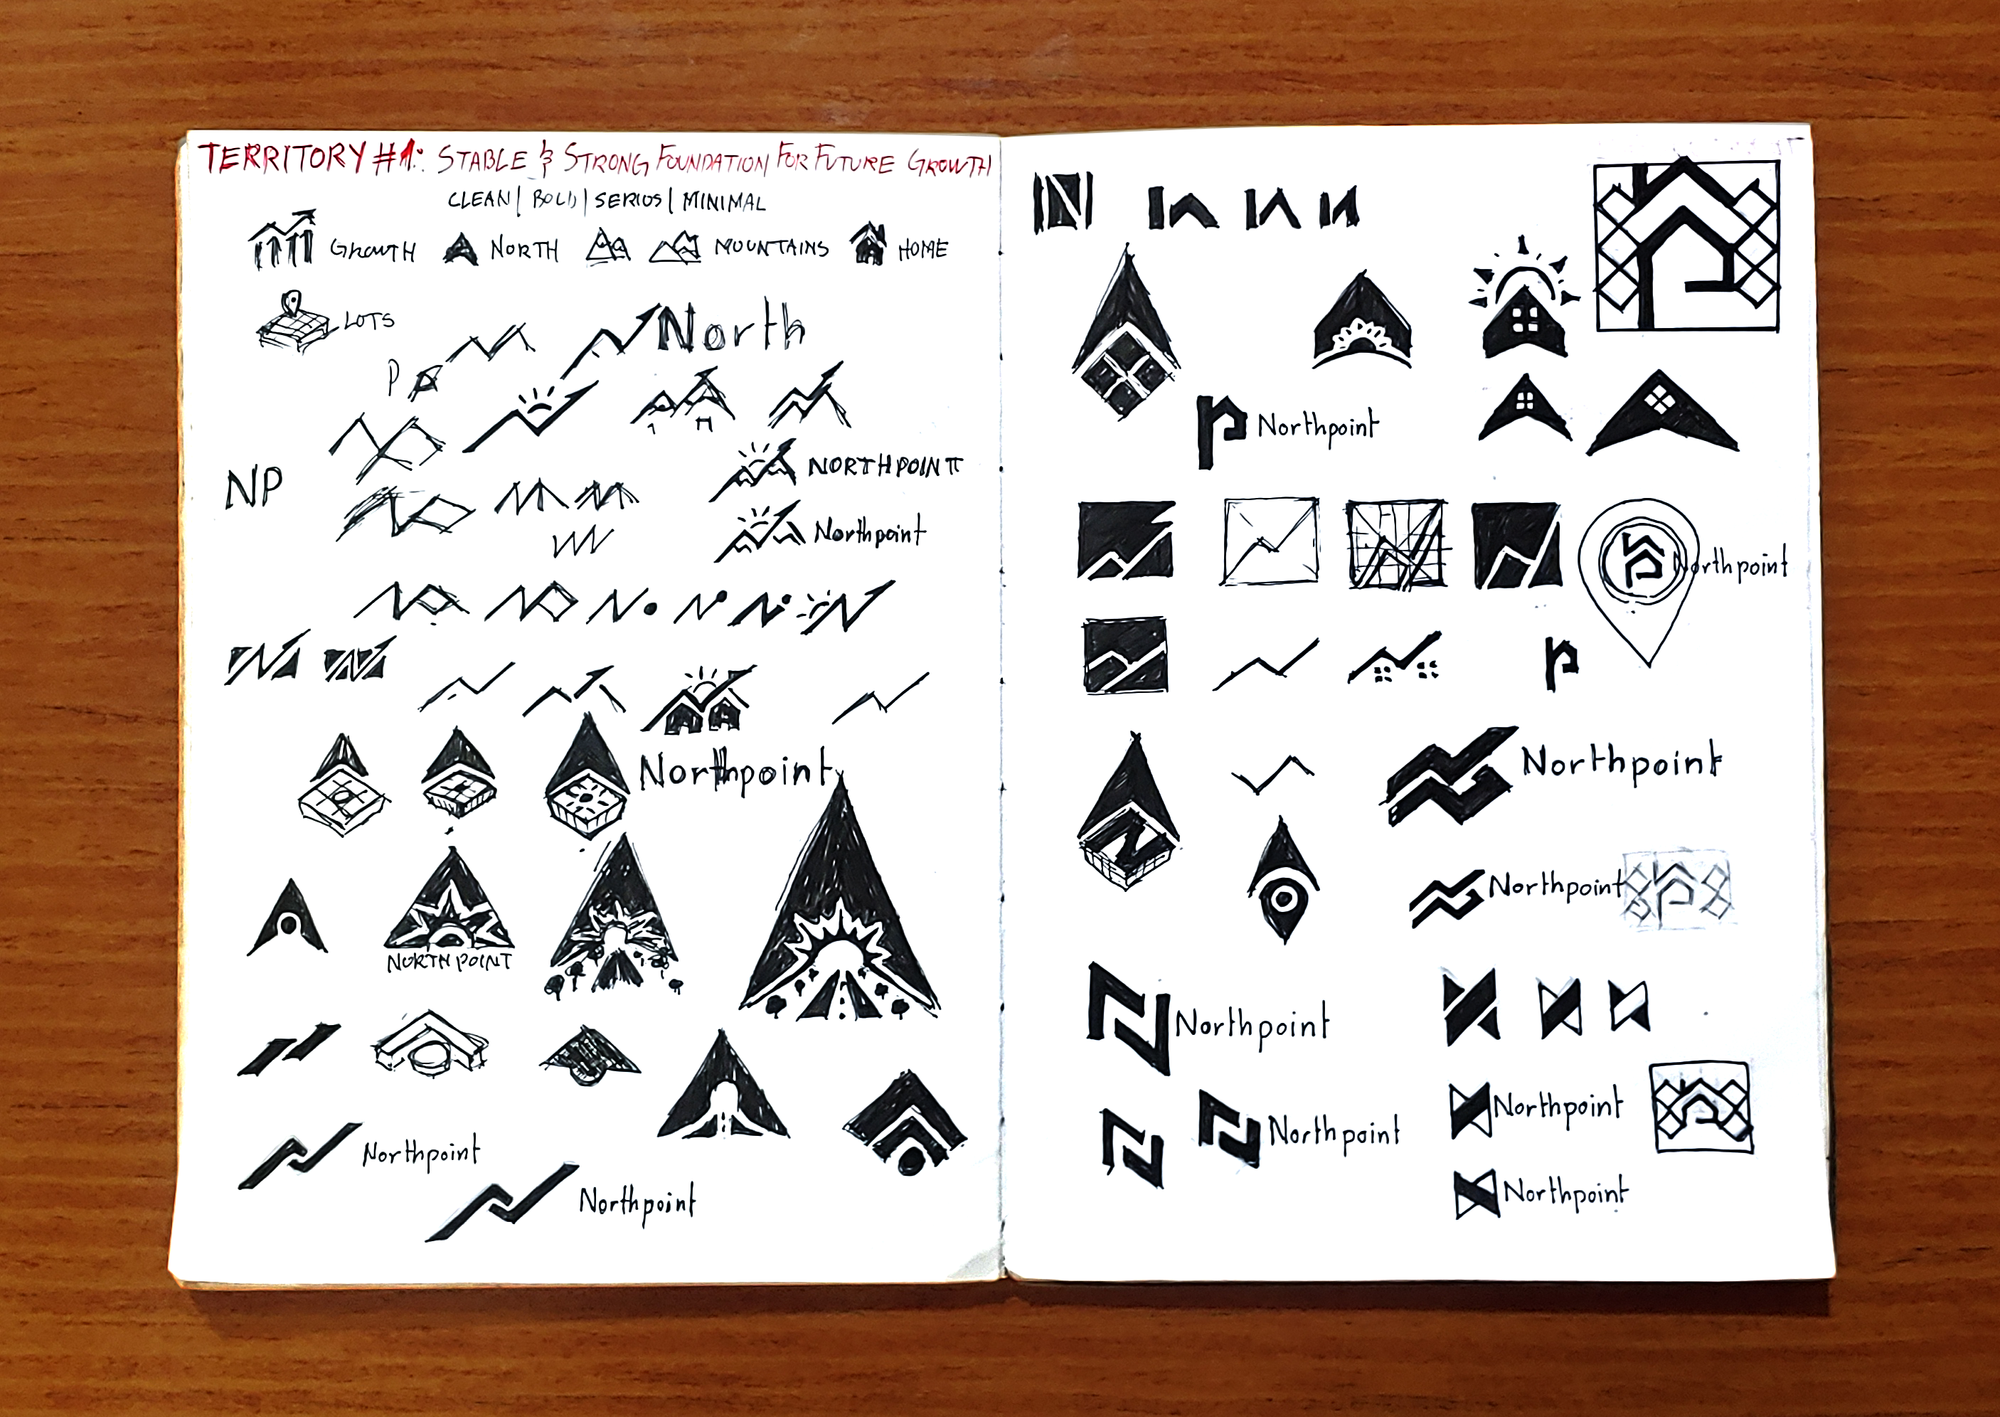 TERRITORY #1: STABLE & STRONG FOUNDATION FOR FUTURE GROWTH
CLEAN | BOLD | SERIOS | MINIMAL
GROWTH
NORTH
MOUNTAINS
HOME
LOTS
North
P
NORTHPOINT
NP
Northpoint
Northpoint
NORTHPOINT
Northpoint
Northpoint
Northpoint
Northpoint
Northpoint
Northpoint
Northpoint
Northpoint
Northpoint
Northpoint
Northpoint